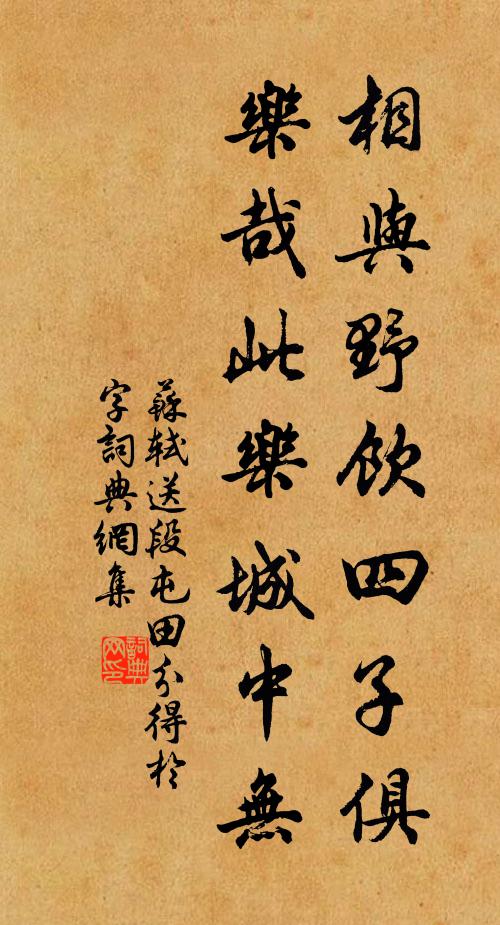 相與野飲四子俱
樂哉此樂城中無
蘇軾送段屯田分得於
字詞典網集
詞典
网印